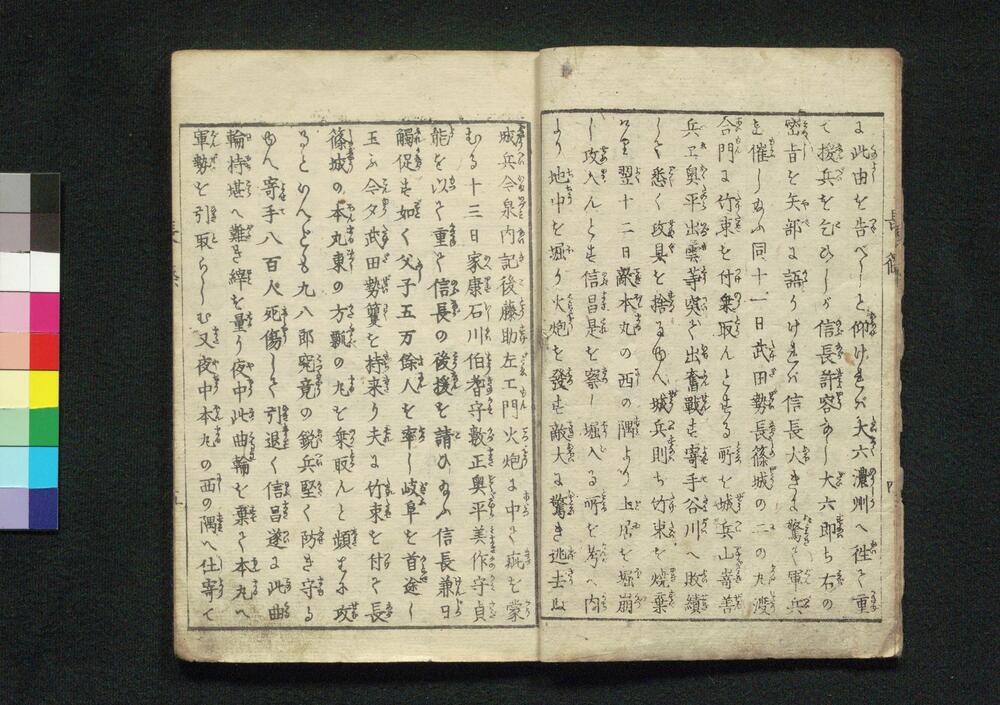 に此由を告べしと仰けれバ大六濃州へ往て重
て援兵を乞ひしかバ信長許容あし大六即ち右の
密旨を矢部に語りけれバ信長大きに驚き軍兵
を催し給ふ同十一日武田勢長篠城の二の丸渡
合門に竹束を付乗取んとする所を城兵山嵜善
兵衛奥平出雲等突て出奮戦す寄手谷川へ敗績
して悉く攻具を捨るゆへ城兵則ち竹束を焼棄
翌十二日敵本丸の西の隅より土居を堀崩
し攻入んとす信昌是を察し堀入る所を考へ内
より地中を堀り火炮を發す敵大に驚き逃去
城兵今泉内記後藤助左エ門火炮に中て疵を蒙
むる十三日家康石川伯耆守數正奥平美作守貞
能を以て重て信長の後援を請ひ給ふ信長兼日
觸促す如く父子五万餘人を率し岐阜を首途し
玉ふ今夕武田勢簍を持来り夫に竹束を付て長
篠城の本丸東の方瓢の丸を乗取んと頻りに攻
るといへども九八郎究竟の鋭兵堅く防き守る
ゆへ寄手八百人死傷して引退く信昌遂に此曲
輪持堪へ難き繹を量り夜中此曲輪を棄て本丸へ
軍勢を引取らしむ又夜中本丸の西の隅へ仕寄て
長篠